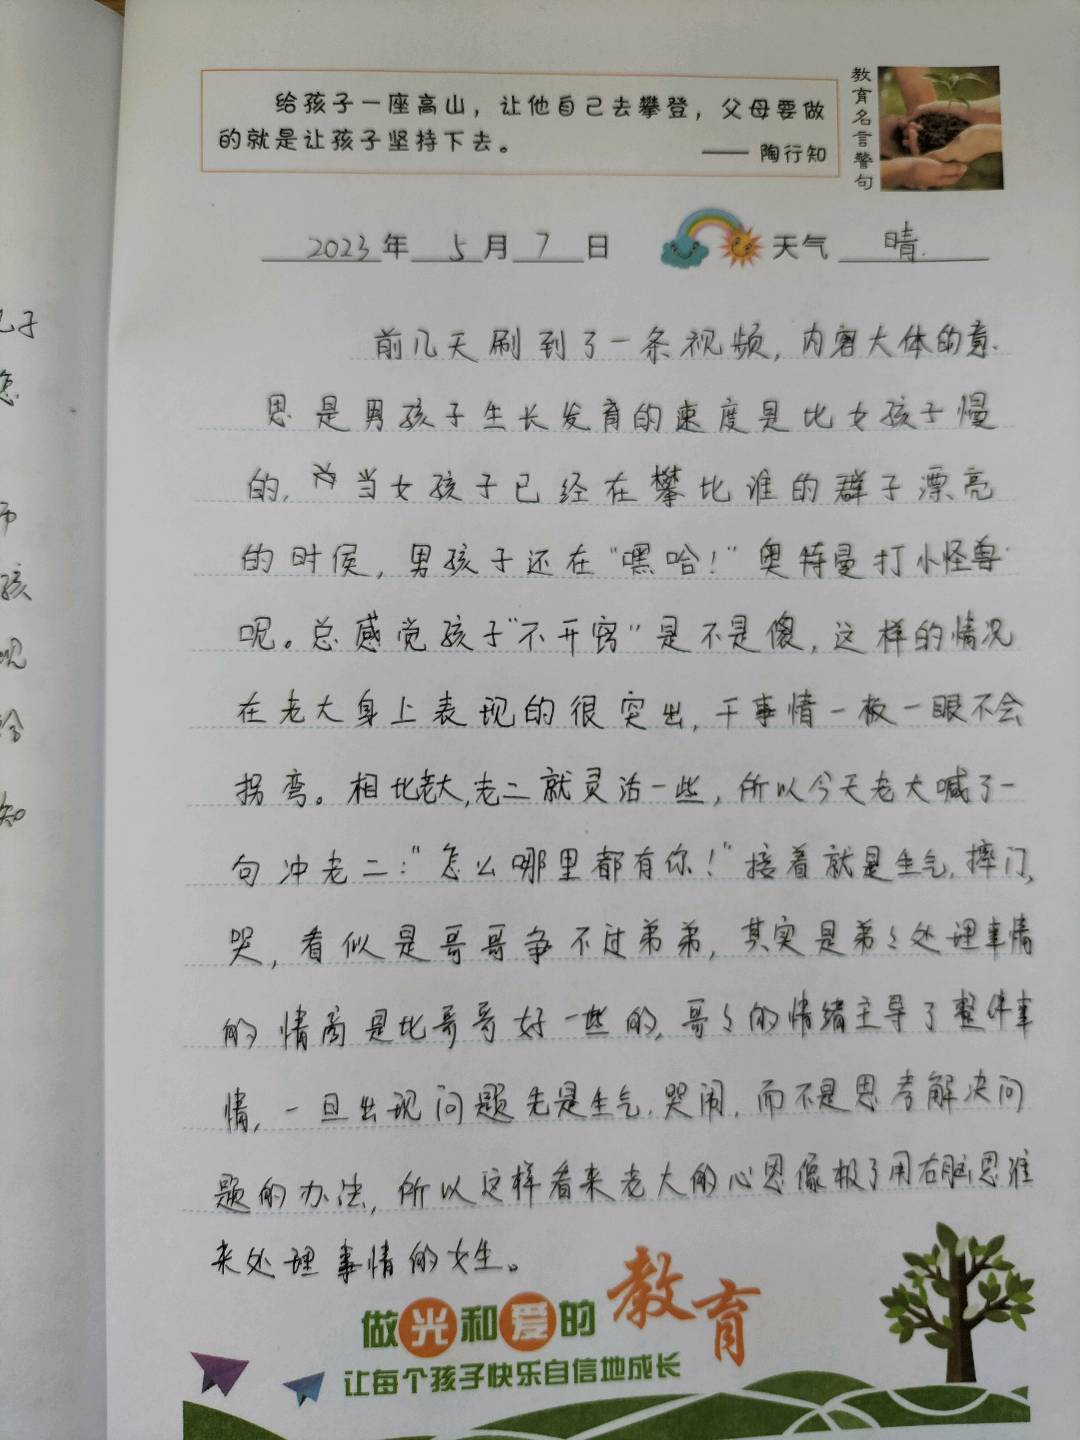 给孩子一座高山，让他自己去攀登，父母要做
的就是让孩子坚持下去。
—— 陶行知
教育名言警句
2023年 5月 7日 天气 晴.
前几天刷到了一条视频，内容大体的意
思是男孩子生长发育的速度是比女孩子慢
的，当女孩子已经在攀比谁的群子漂亮
的时侯，男孩子还在“嘿哈！”奥特曼打小怪兽
呢。总感觉孩子“不开窍”是不是傻，这样的情况
在老大身上表现的很突出，干事情一板一眼不会
拐弯。相比老大,老二就灵活一些，所以今天老大喊了一
句冲老二：“怎么哪里都有你！”接着就是生气,摔门,
哭，看似是哥哥争不过弟弟，其实是弟々处理事情
的情商是比哥哥好一些的,哥々的情绪主导了整件事
情，一旦出现问题先是生气,哭闹，而不是思考解决问
题的办法，所以这样看来老大的心思像极了用右脑思维
来处理事情的女生。
做光和爱的教育
让每个孩子快乐自信地成长
孩
知